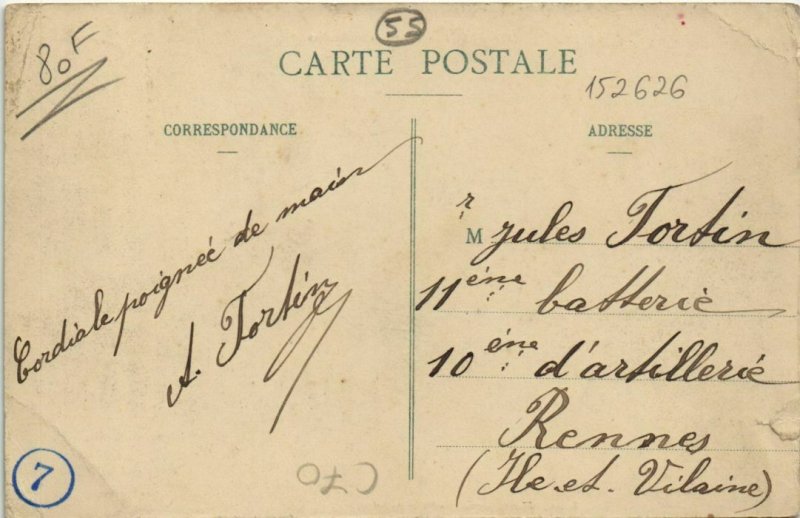 80F
55
CARTE POSTALE
152626
CORRESPONDANCE
ADRESSE
Cordiale poigneé de main
A. Fortin
Mr Jules Fortin
11ème batterie
10ème d'artillerie
Rennes
(Ile et Vilaine)
7
C70